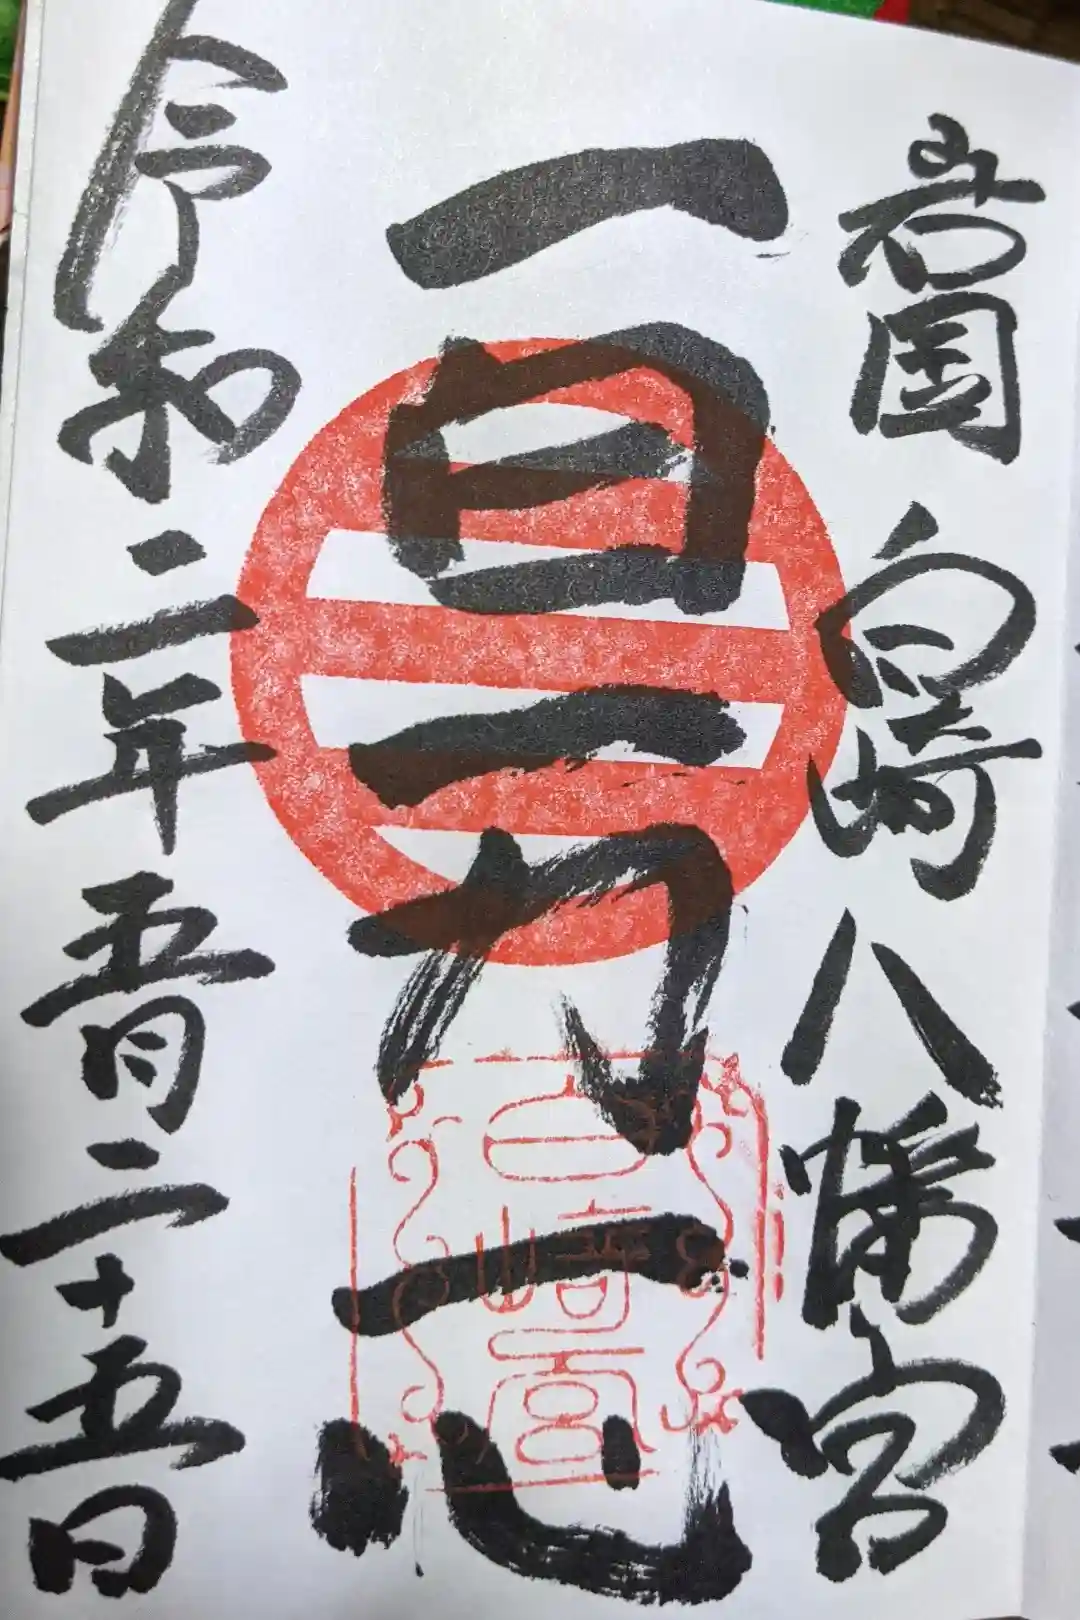 岩國 白崎八幡宮
一日一力一心
令和二年五月二十五日